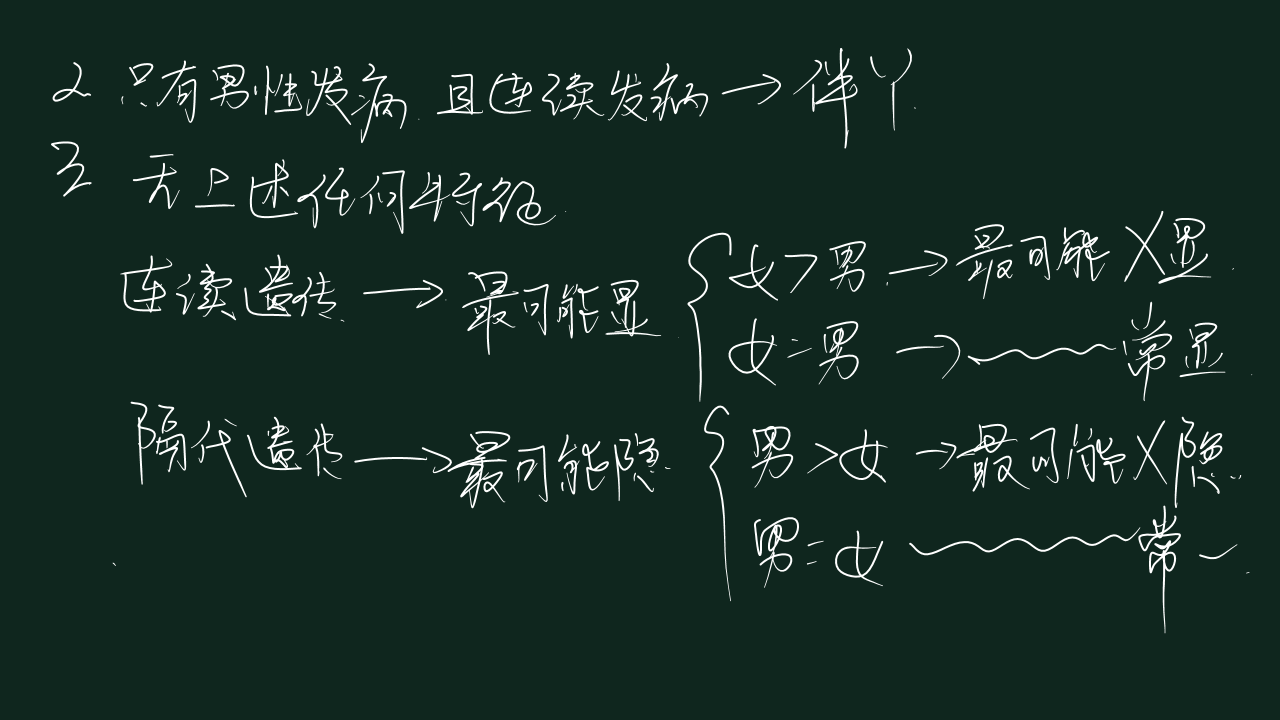 2 只有男性发病 且连续发病→伴Y
3 无上述任何特征
连续遗传→最可能显
女>男→最可能X显
女=男→~~~常显
隔代遗传→最可能隐
男>女→最可能X隐
男=女~~~常~